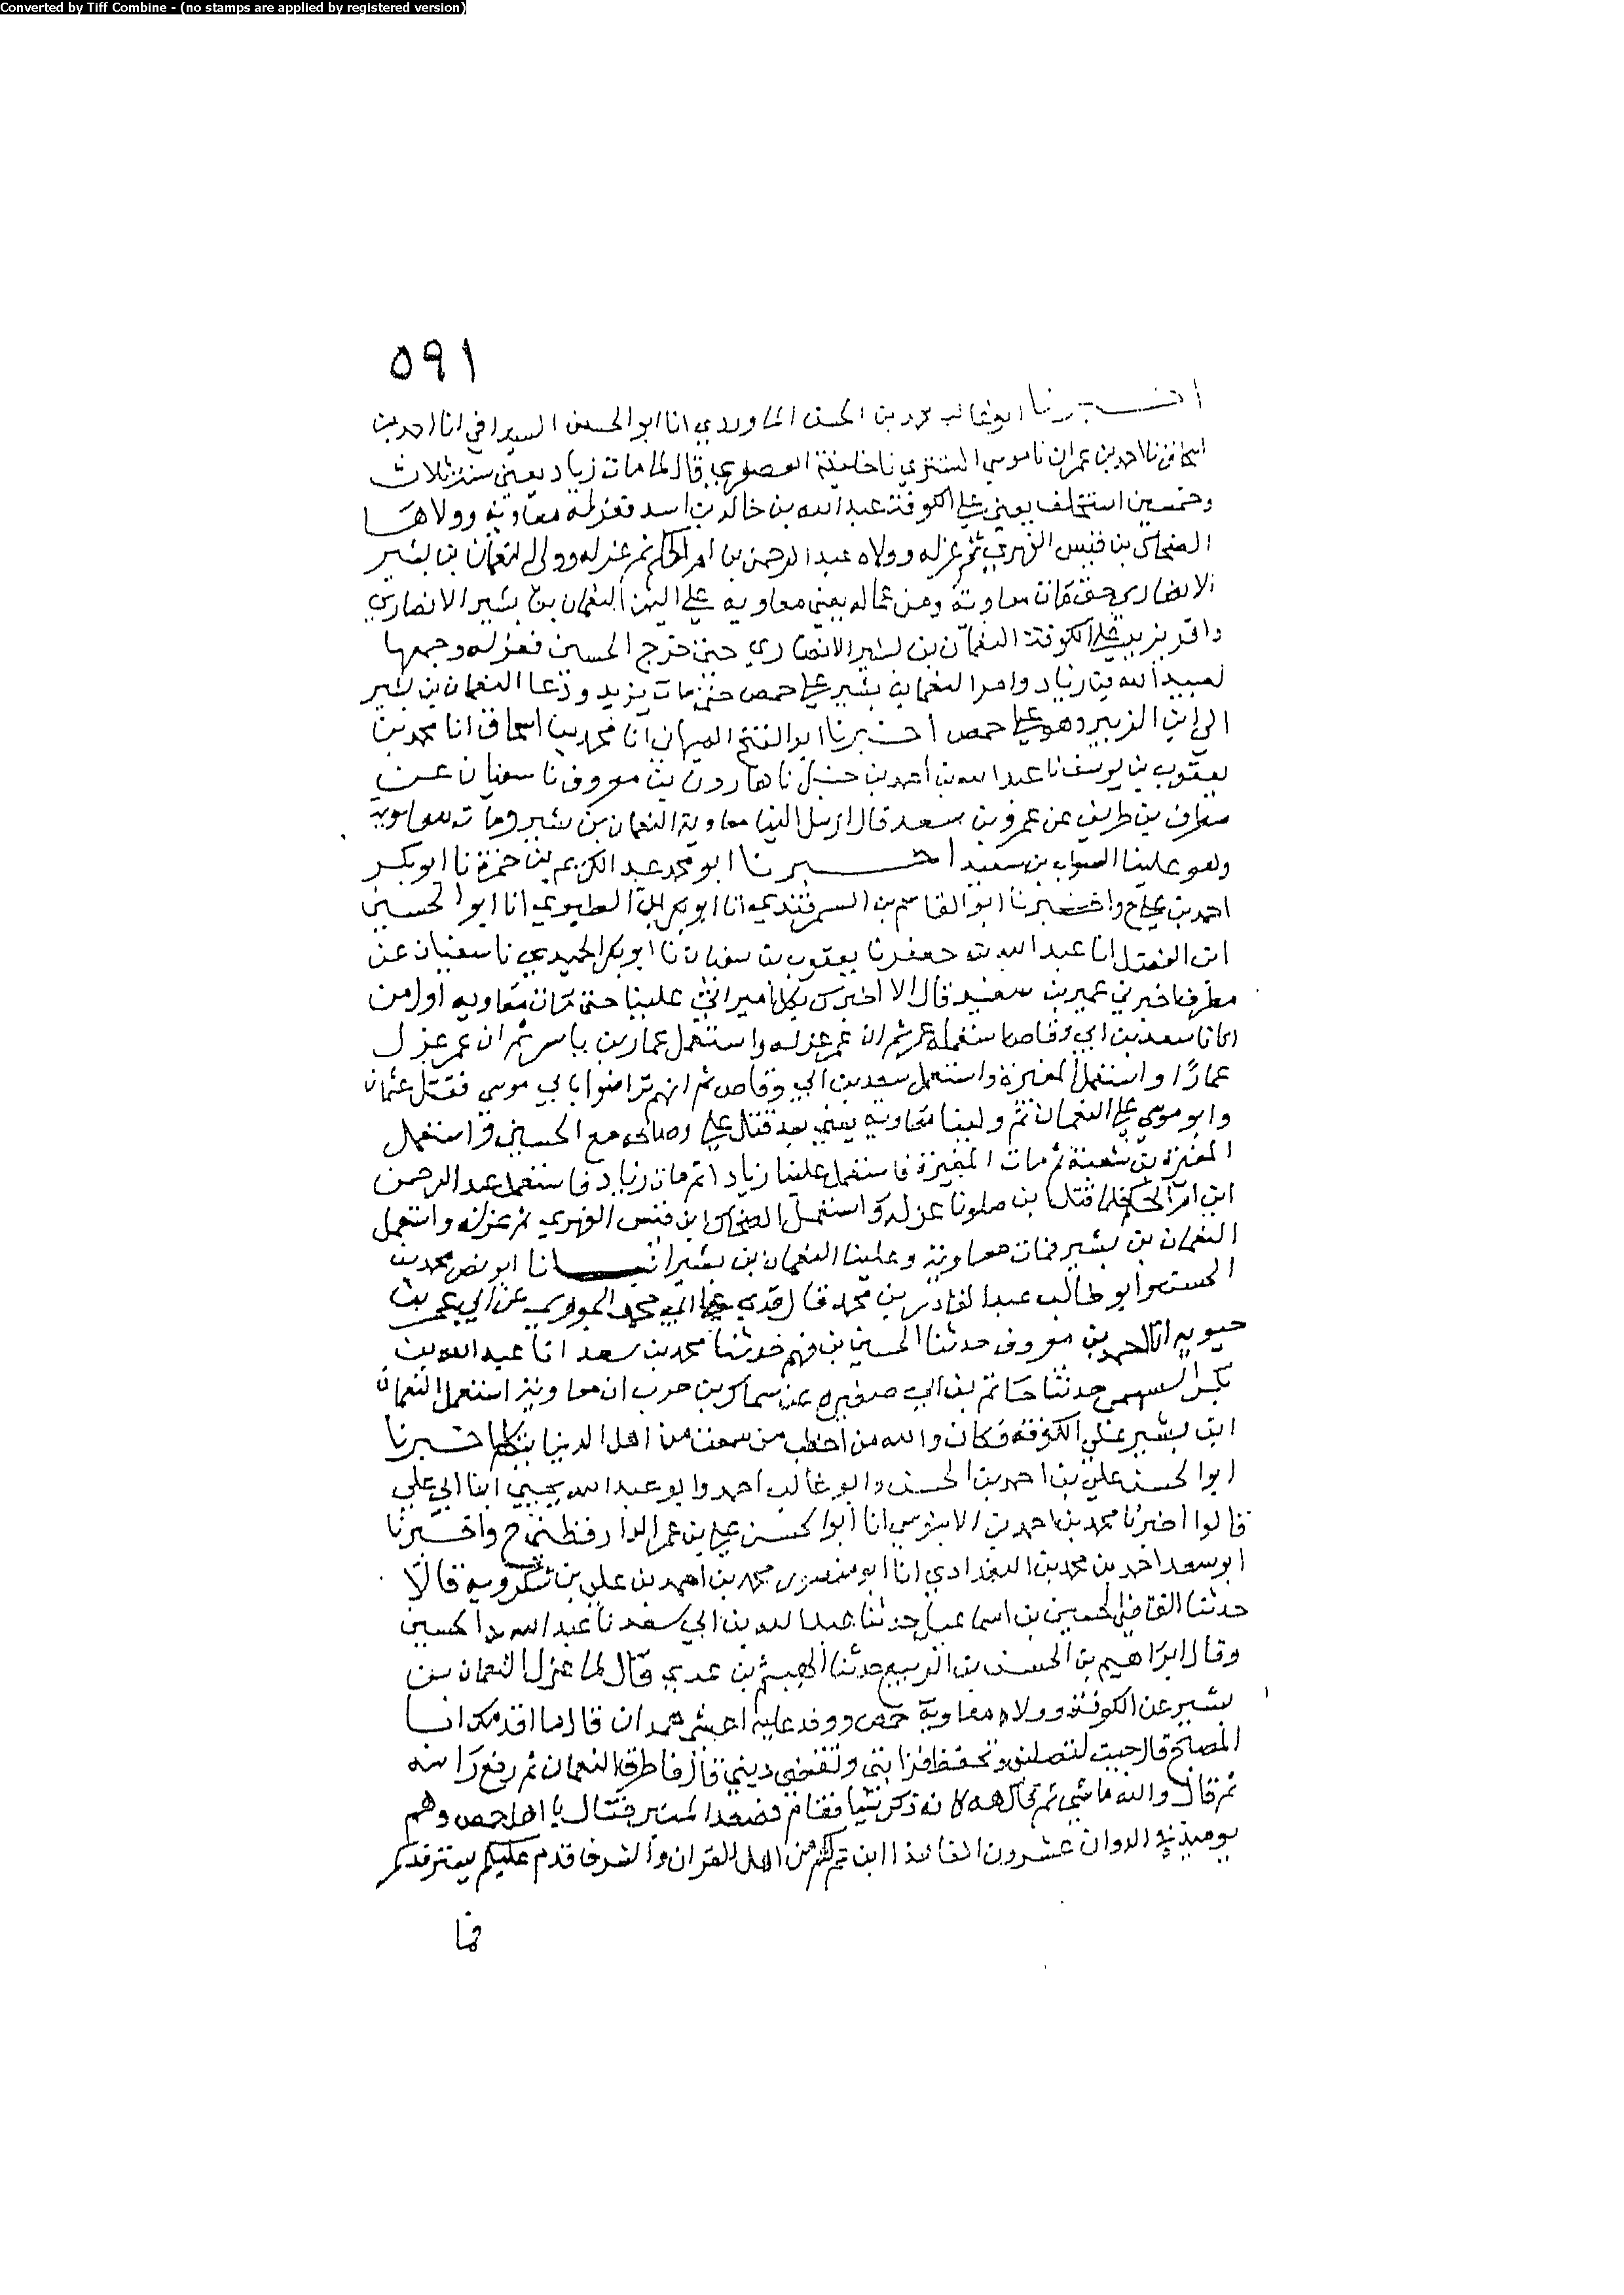 Converted by Tiff Combine - (no stamps are applied by registered version)
٥٩١
اخبرنا ابو غالب محمد بن الحسن الماوردي انا ابو الحسين السيرافي انا احمد بن
اسحاق نا احمد بن عمران نا موسى التستري نا خليفة العصفري قال لما مات زياد يعني سنة ثلاث
وخمسين استخلف يعني على الكوفة عبد الله بن خالد بن اسد فعزله معاوية وولاها
الضحاك بن قيس الفهري ثم عزله وولاه عبد الرحمن بن ام الحكم ثم عزله وولى النعمان بن بشير
الانصاري حتى مات معاوية ومن عماله يعني معاويه على اليمن النعمان بن بشير الانصاري
واقر يزيد على الكوفة النعمان بن بشير الانصاري حتى خرج الحسين فعزله وجمعها
لعبيد الله بن زياد وامر النعمان بن بشير على حمص حتى مات يزيد ودعا النعمان بن بشير
الى ابن الزبير وهو على حمص اخبرنا ابو الفتح انا محمد بن اسحاق انا محمد بن
يعقوب بن يوسف نا عبد الله بن احمد بن حنبل نا هارون بن معروف نا سفيان عن
مطرف بن طريف عن عمرو بن سعد قال ارسل الينا معاوية النعمان بن بشير ومات معاوية
وهو علينا الصواب بن سعيد اخبرنا ابو محمد عبد الكريم بن حمزة نا ابو بكر
احمد بن علي ح واخبرنا ابو القاسم بن السمرقندي انا ابو بكر بن الطبري انا ابو الحسين
ابن الفضل انا عبد الله بن جعفر نا يعقوب بن سفيان نا ابو بكر الحميدي نا سفيان عن
مطرف اخبرني عمير بن سعيد قال الا اخبرك بكل امير علينا حتى مات معاويه اول من
اتانا سعد بن ابي وقاص استعمله عمر ثم ان عمر عزله واستعمل عمار بن ياسر ثم ان عمر عزل
عمارا واستعمل المغيرة واستعمل سعد بن ابي وقاص ثم انهم تراضوا بابي موسى فقتل عثمان
وابو موسى على النعمان ثم ولينا معاويه يعني بعد قتل علي وصالحه مع الحسين واستعمل
المغيرة بن شعبة ثم مات المغيرة فاستعمل علينا زيادا ثم مات زياد فاستعمل عبد الرحمن
ابن ام الحكم فلما قتل بن صلوبا عزله واستعمل الضحاك ابن قيس الفهري ثم عزله واستعمل
النعمان بن بشير فمات معاوية وعلينا النعمان بن بشير انبانا ابو نصر محمد بن
الحسن وابو طالب عبد القادر بن محمد قال قرئ على ابي محمد الجوهري عن ابي عمر بن
حيويه انا احمد بن معروف حدثنا الحسين بن فهم حدثنا محمد بن سعد انا عبد الله بن
بكر السهمي حدثنا حاتم بن ابي صغيره عن سماك بن حرب ان معاوية استعمل النعمان
ابن بشير على الكوفة فكان والله من اخطب من سمعت من اهل الدنيا يتكلم اخبرنا
ابو الحسن علي بن احمد بن الحسن وابو غالب احمد وابو عبد الله يحيى ابنا ابي علي
قالوا اخبرنا محمد بن احمد بن الابنوسي انا ابو الحسن علي بن عمر الدارقطني ح واخبرنا
ابو سعد احمد بن محمد بن البغدادي انا ابو منصور محمد بن احمد بن علي بن شكرويه قالا
حدثنا القاضي الحسين بن اسماعيل حدثنا عبد الله بن ابي سعد نا عبد الله بن الحسين
وقال ابراهيم بن الحسن بن الربيع حدثنا الهيثم بن عدي قال لما عزل النعمان بن
بشير عن الكوفة وولاه معاوية حمص ووفد عليه اعشى همدان قال ما اقدمك ابا
المصبح قال جيت لتصلني وتحفظ قرابتي وتقضي ديني قال فاطرق النعمان ثم رفع راسه
ثم قال والله ما شي ثم قال هه كانه ذكر شيا فقام فصعد المنبر فقال يا اهل حمص وهم
يوميذ في الديوان عشرون الفا هذا ابن عم لكم من اهل القران والشرف قدم عليكم يسترفدكم
فما